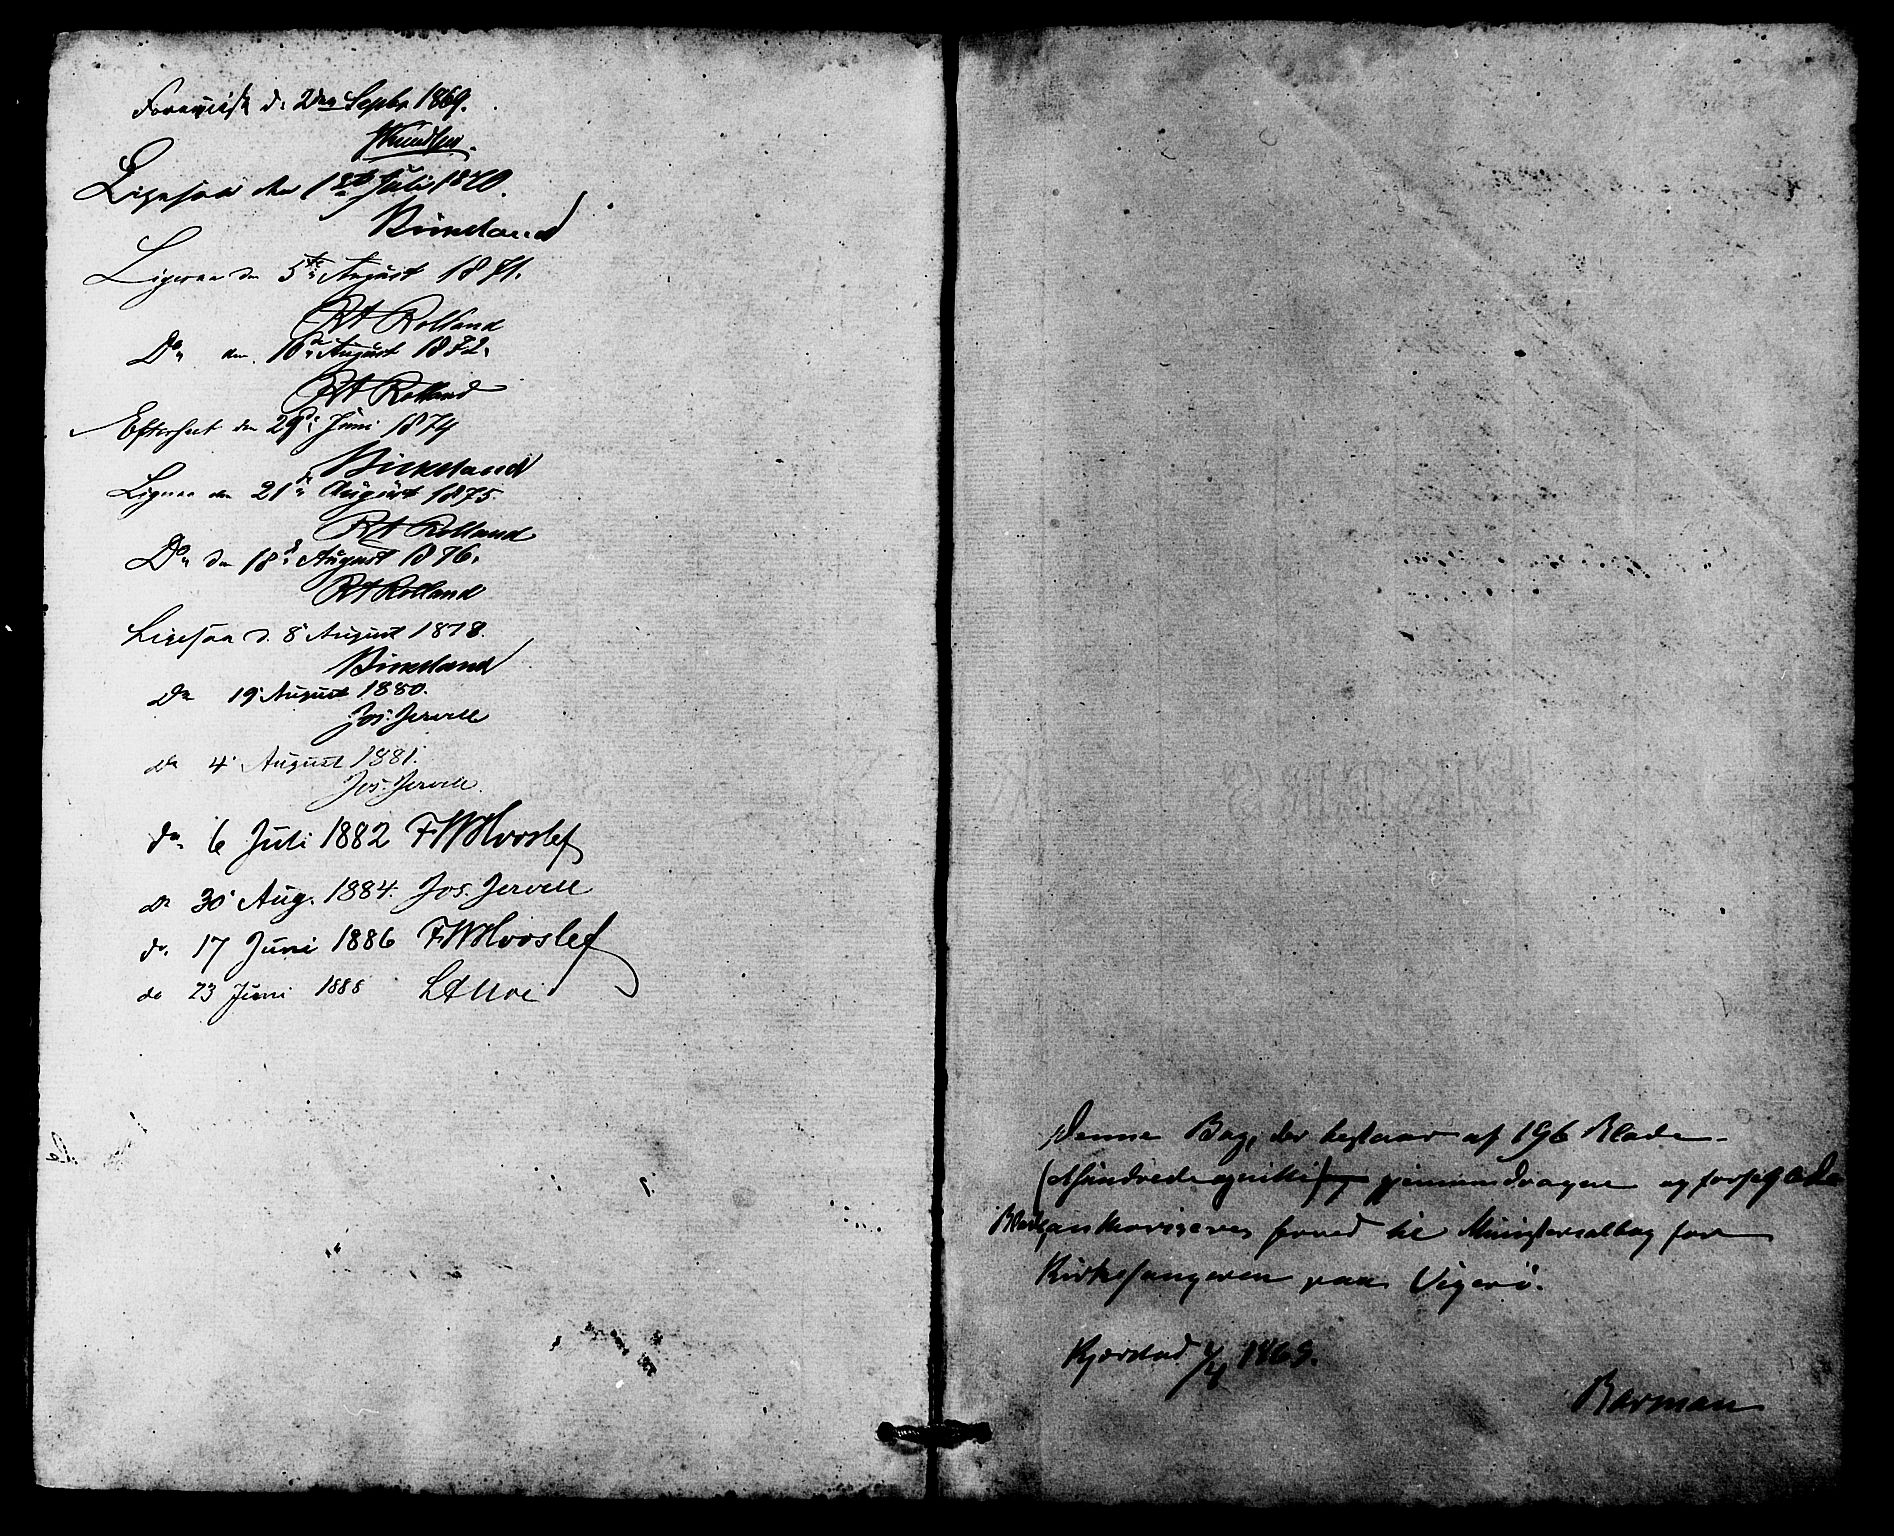 Foreviist d. 2den Septbr 1869.
Knudtzen.
Ligesaa den 1ste Juli 1870.
Birkeland
Ligesaa den 5te August 1871.
RA Rolland
Do den 10de August 1872.
RA Rolland
Efterseet den 29de Juni 1874
Birkeland
Ligesaa den 21de August 1875.
RA Rolland
Do den 18de August 1876.
RA Rolland
Ligesaa d. 8 August 1878.
Birkeland
Do 19 August 1880.
Jos. Jervell
do 4 August 1881.
Jos. Jervell.
do 6 Juli 1882 FWHvoslef
do 30 Aug. 1884. Jos. Jervell
do. 17 Juni 1886 FWHvoslef
do 23 Juni 1888 LAMoe
Denne Bog, der bestaar af 196 Blade
(ethundrede og nitti) gjennemdragne og forseglede
Blade, authoriseres herved til Ministerialbog for
Kirkesangeren paa Vigerö.
Kjørstad 1869.
Barman